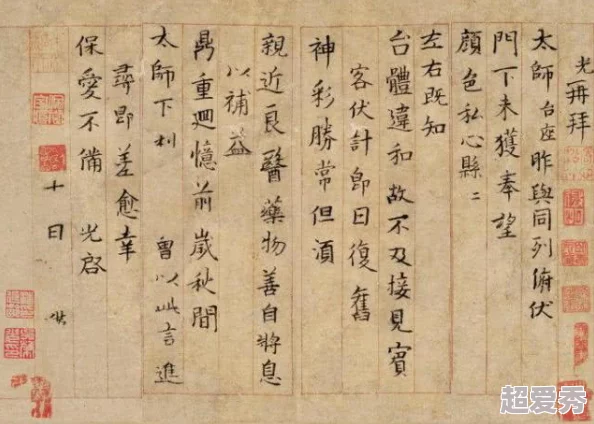 光再拜
太師台座昨與同列俯伏
門下未獲奉望
顏色私心縣〻
左右既知
台體違和故不及接見賓
客伏計即日復舊
神彩勝常但湏
親近良醫藥物善自將息
以補益
鼎重迴憶前歲秋間
太師下利 曾以此言進
尋即差愈幸
保愛不備 光啓
十日
超爱秀